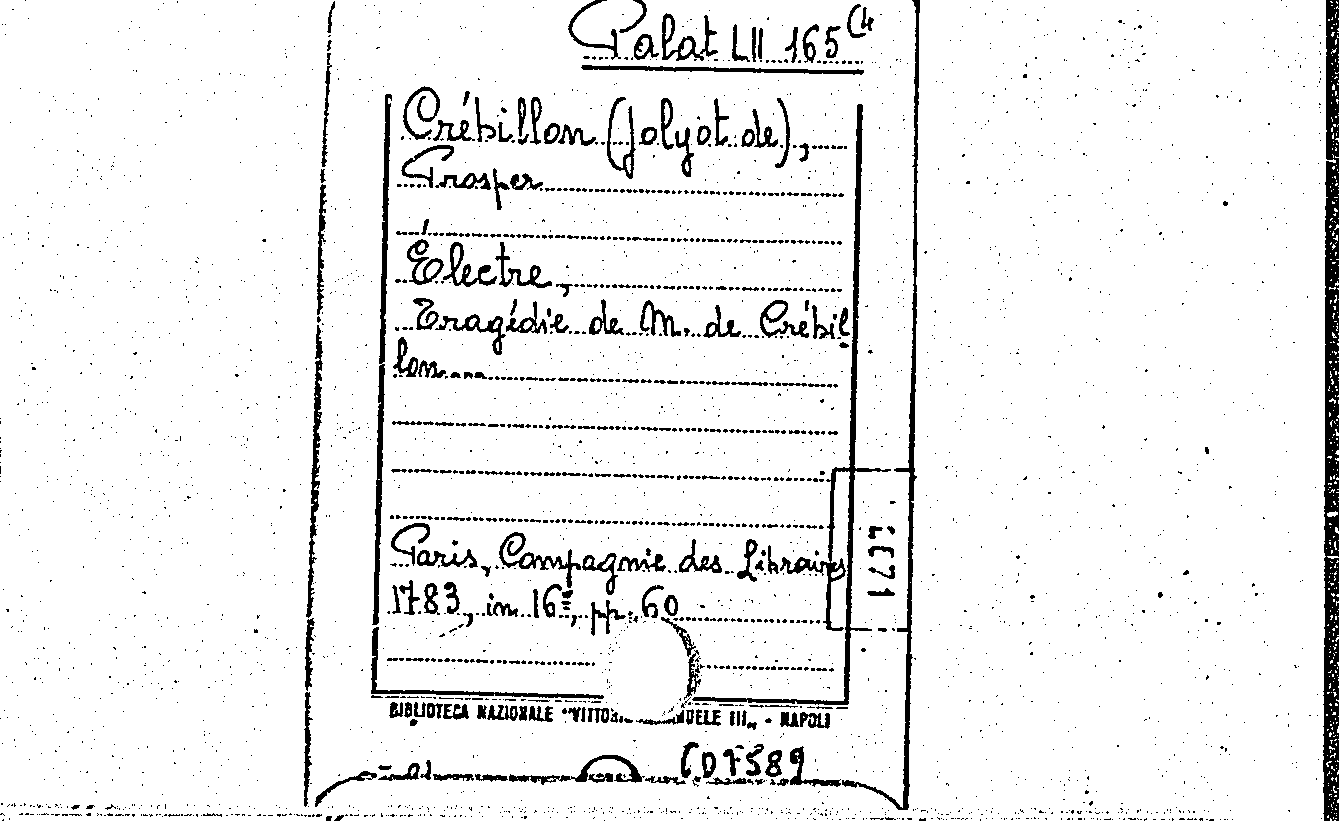 Palat LII 165 (4
Crébillon (Jolyot de),
Prosper
Électre,
Tragédie de M. de Crébil
lon....
Paris, Compagnie des Libraires
1783, in 16º, pp. 60
BIBLIOTECA NAZIONALE "VITTO NUELE III„ - NAPOLI
CD7589